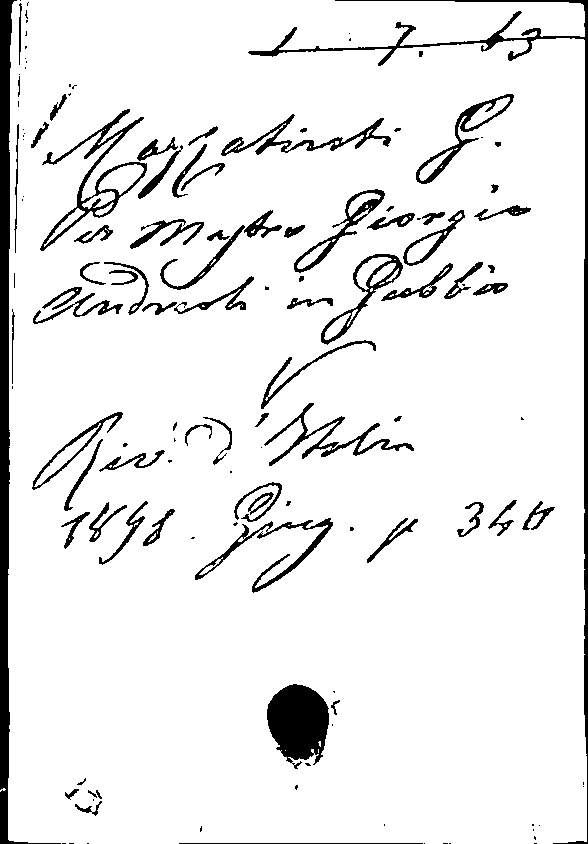 1. 7. 63
Mazzatinti G.
Per Mastro Giorgio
Andreoli in Gubbio
Riv. d'Italia
1898. Giug. p 340